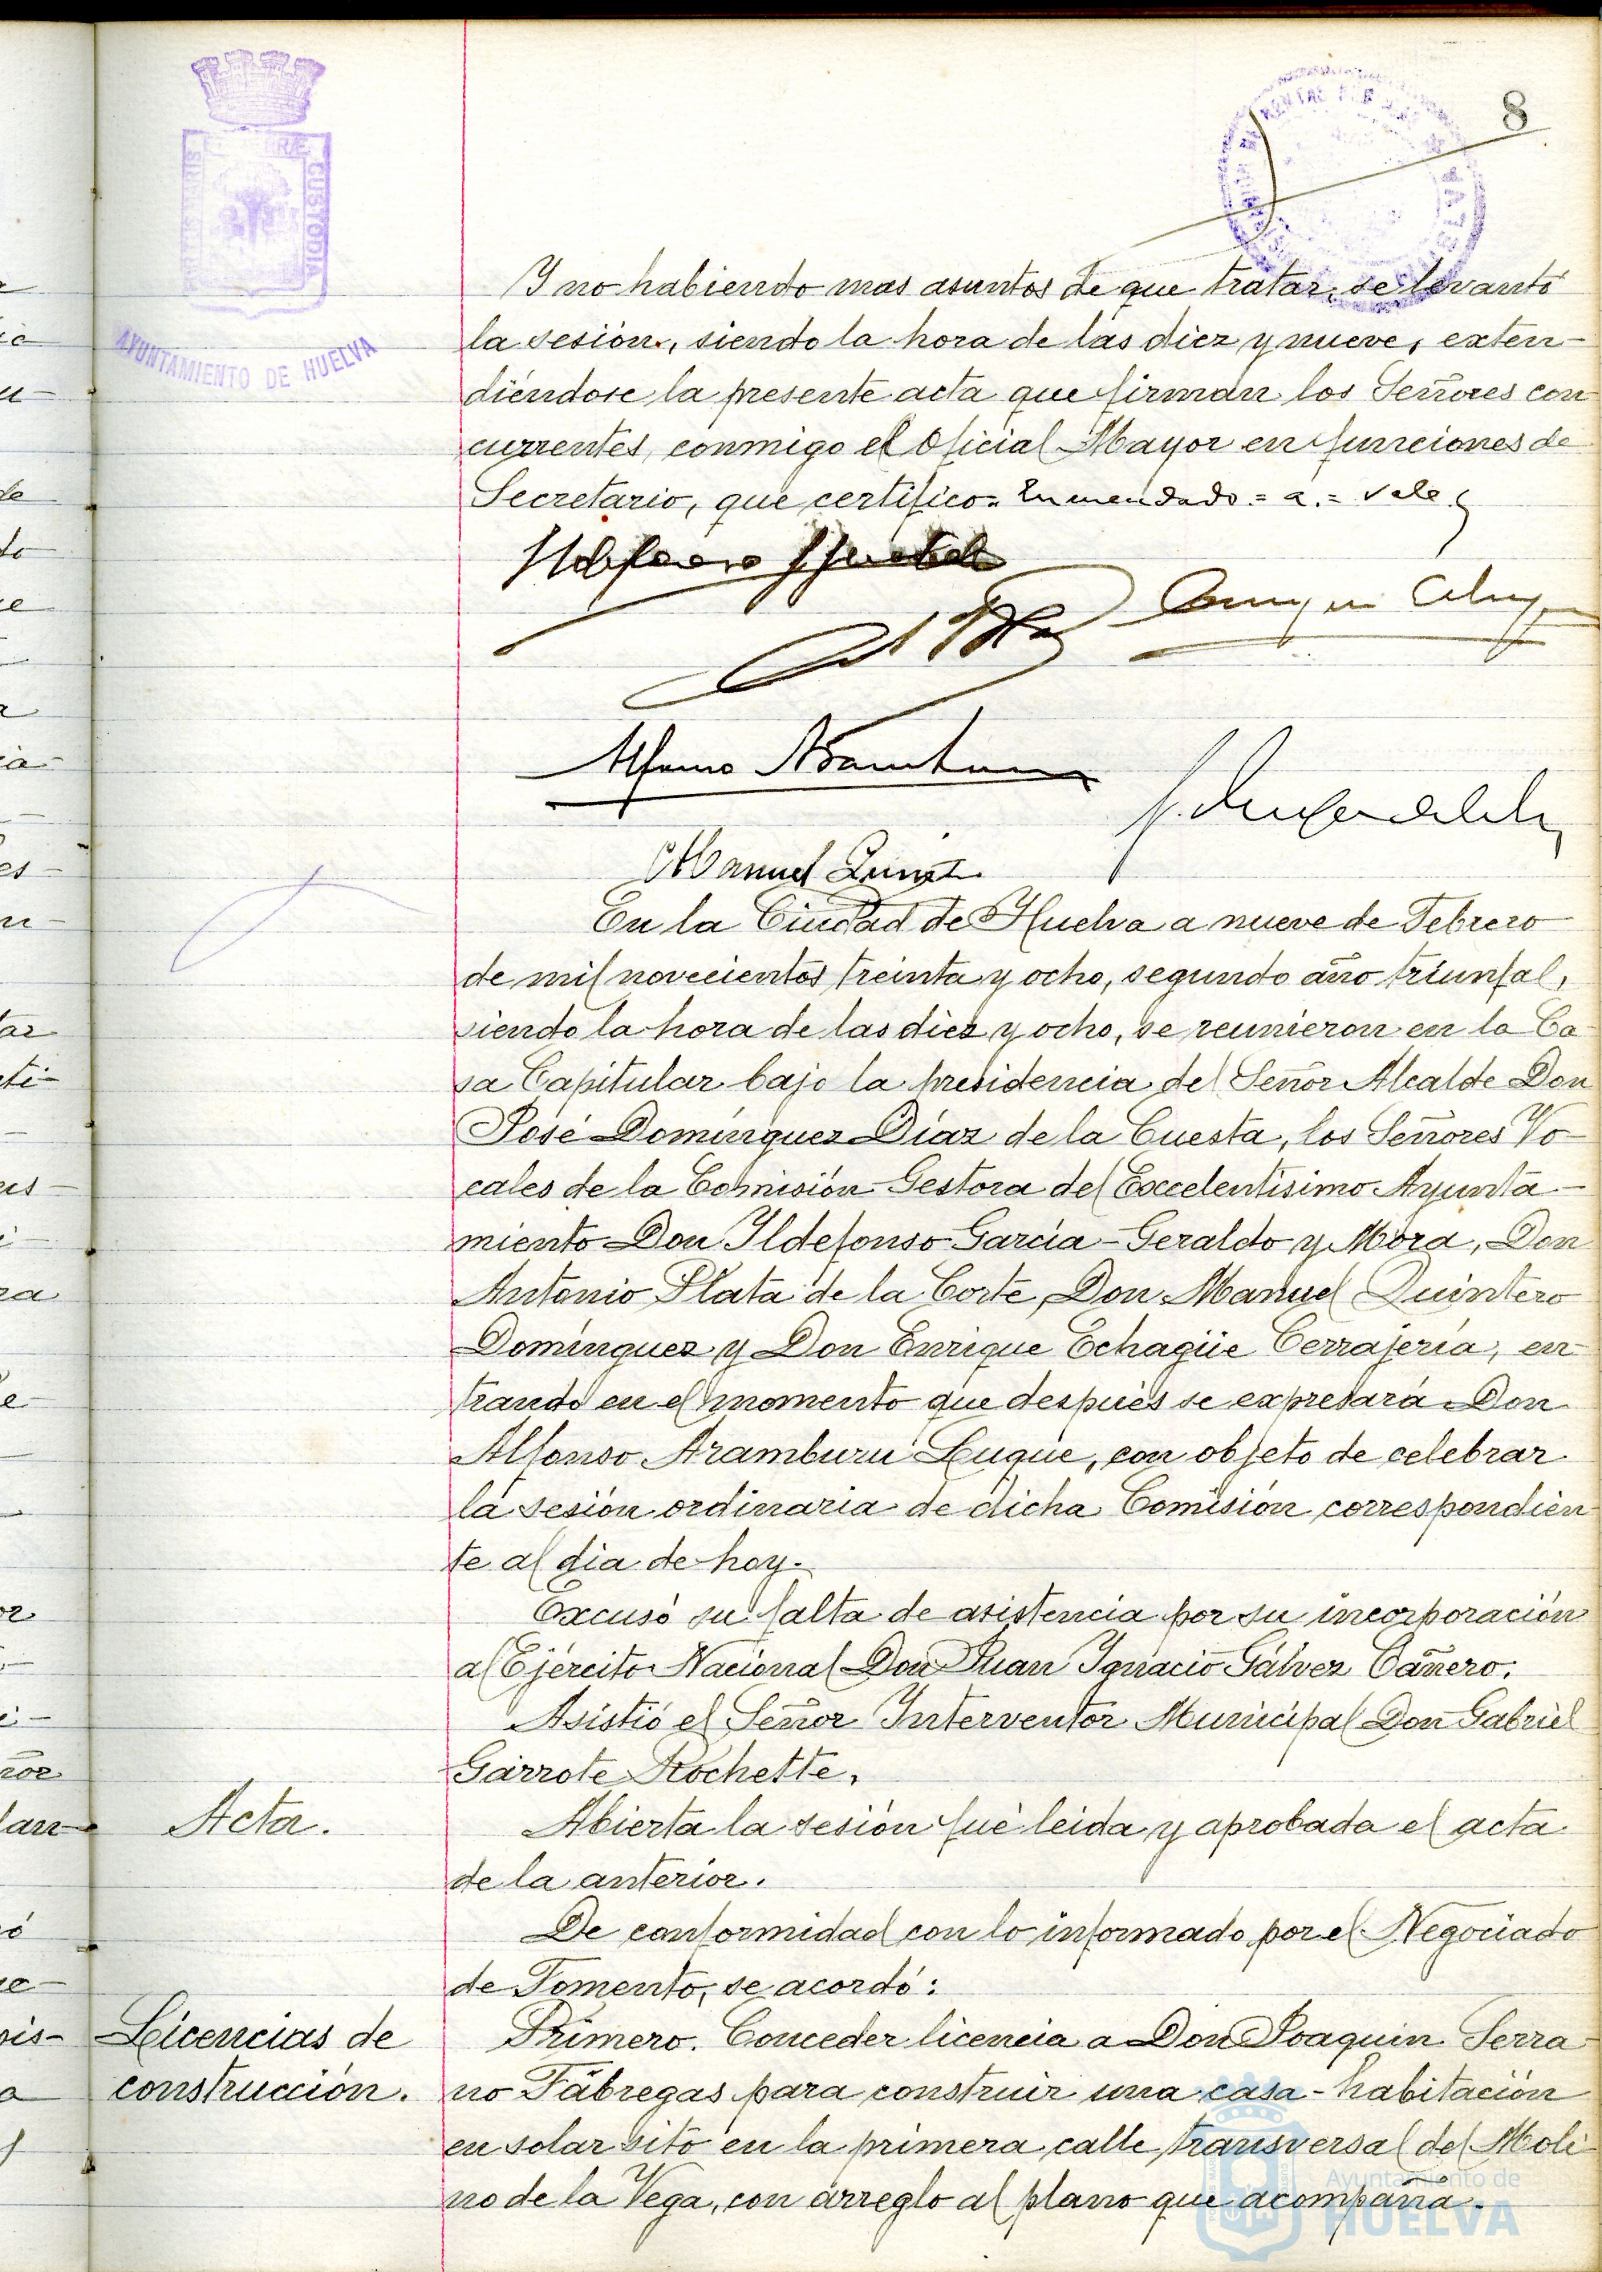 8
AYUNTAMIENTO DE HUELVA
CUSTODIA
Y no habiendo mas asuntos de que tratar, se levantó
la sesión, siendo la hora de las diez y nueve, exten-
diéndose la presente acta que firman los Señores con
currentes, conmigo el Oficial Mayor en funciones de
Secretario, que certifico= Enmendado = a = vale
Alfonso Aramburu
Manuel
En la Ciudad de Huelva a nueve de Febrero
de mil novecientos treinta y ocho, segundo año triunfal,
siendo la hora de las diez y ocho, se reunieron en la Ca
sa Capitular bajo la presidencia del Señor Alcalde Don
José Domínguez Díaz de la Cuesta, los Señores Vo
cales de la Comisión Gestora del Excelentísimo Ayunta-
miento Don Yldefonso García-Geraldo y Mora, Don
Antonio Plata de la Corte, Don Manuel Quintero
Domínguez y Don Enrique Echagüe Cerrajería, en
trando en el momento que después se expresará Don
Alfonso Aramburu Luque, con objeto de celebrar
la sesión ordinaria de dicha Comisión correspondien
te al dia de hoy.
Excusó su falta de asistencia por su incorporación
al Ejército Nacional Don Juan Ygnacio Gálvez Cañero.
Asistió el Señor Interventor Municipal Don Gabriel
Garrote Rochette.
Acta.
Abierta la sesión fué leida y aprobada el acta
de la anterior.
De conformidad con lo informado por el Negociado
de Fomento, se acordó:
Licencias de
construcción.
Primero. Conceder licencia a Don Joaquin Serra
no Fábregas para construir una casa-habitación
en solar sito en la primera calle transversal del Moli
no de la Vega, con arreglo al plano que acompaña.
Ayuntamiento de
HUELVA